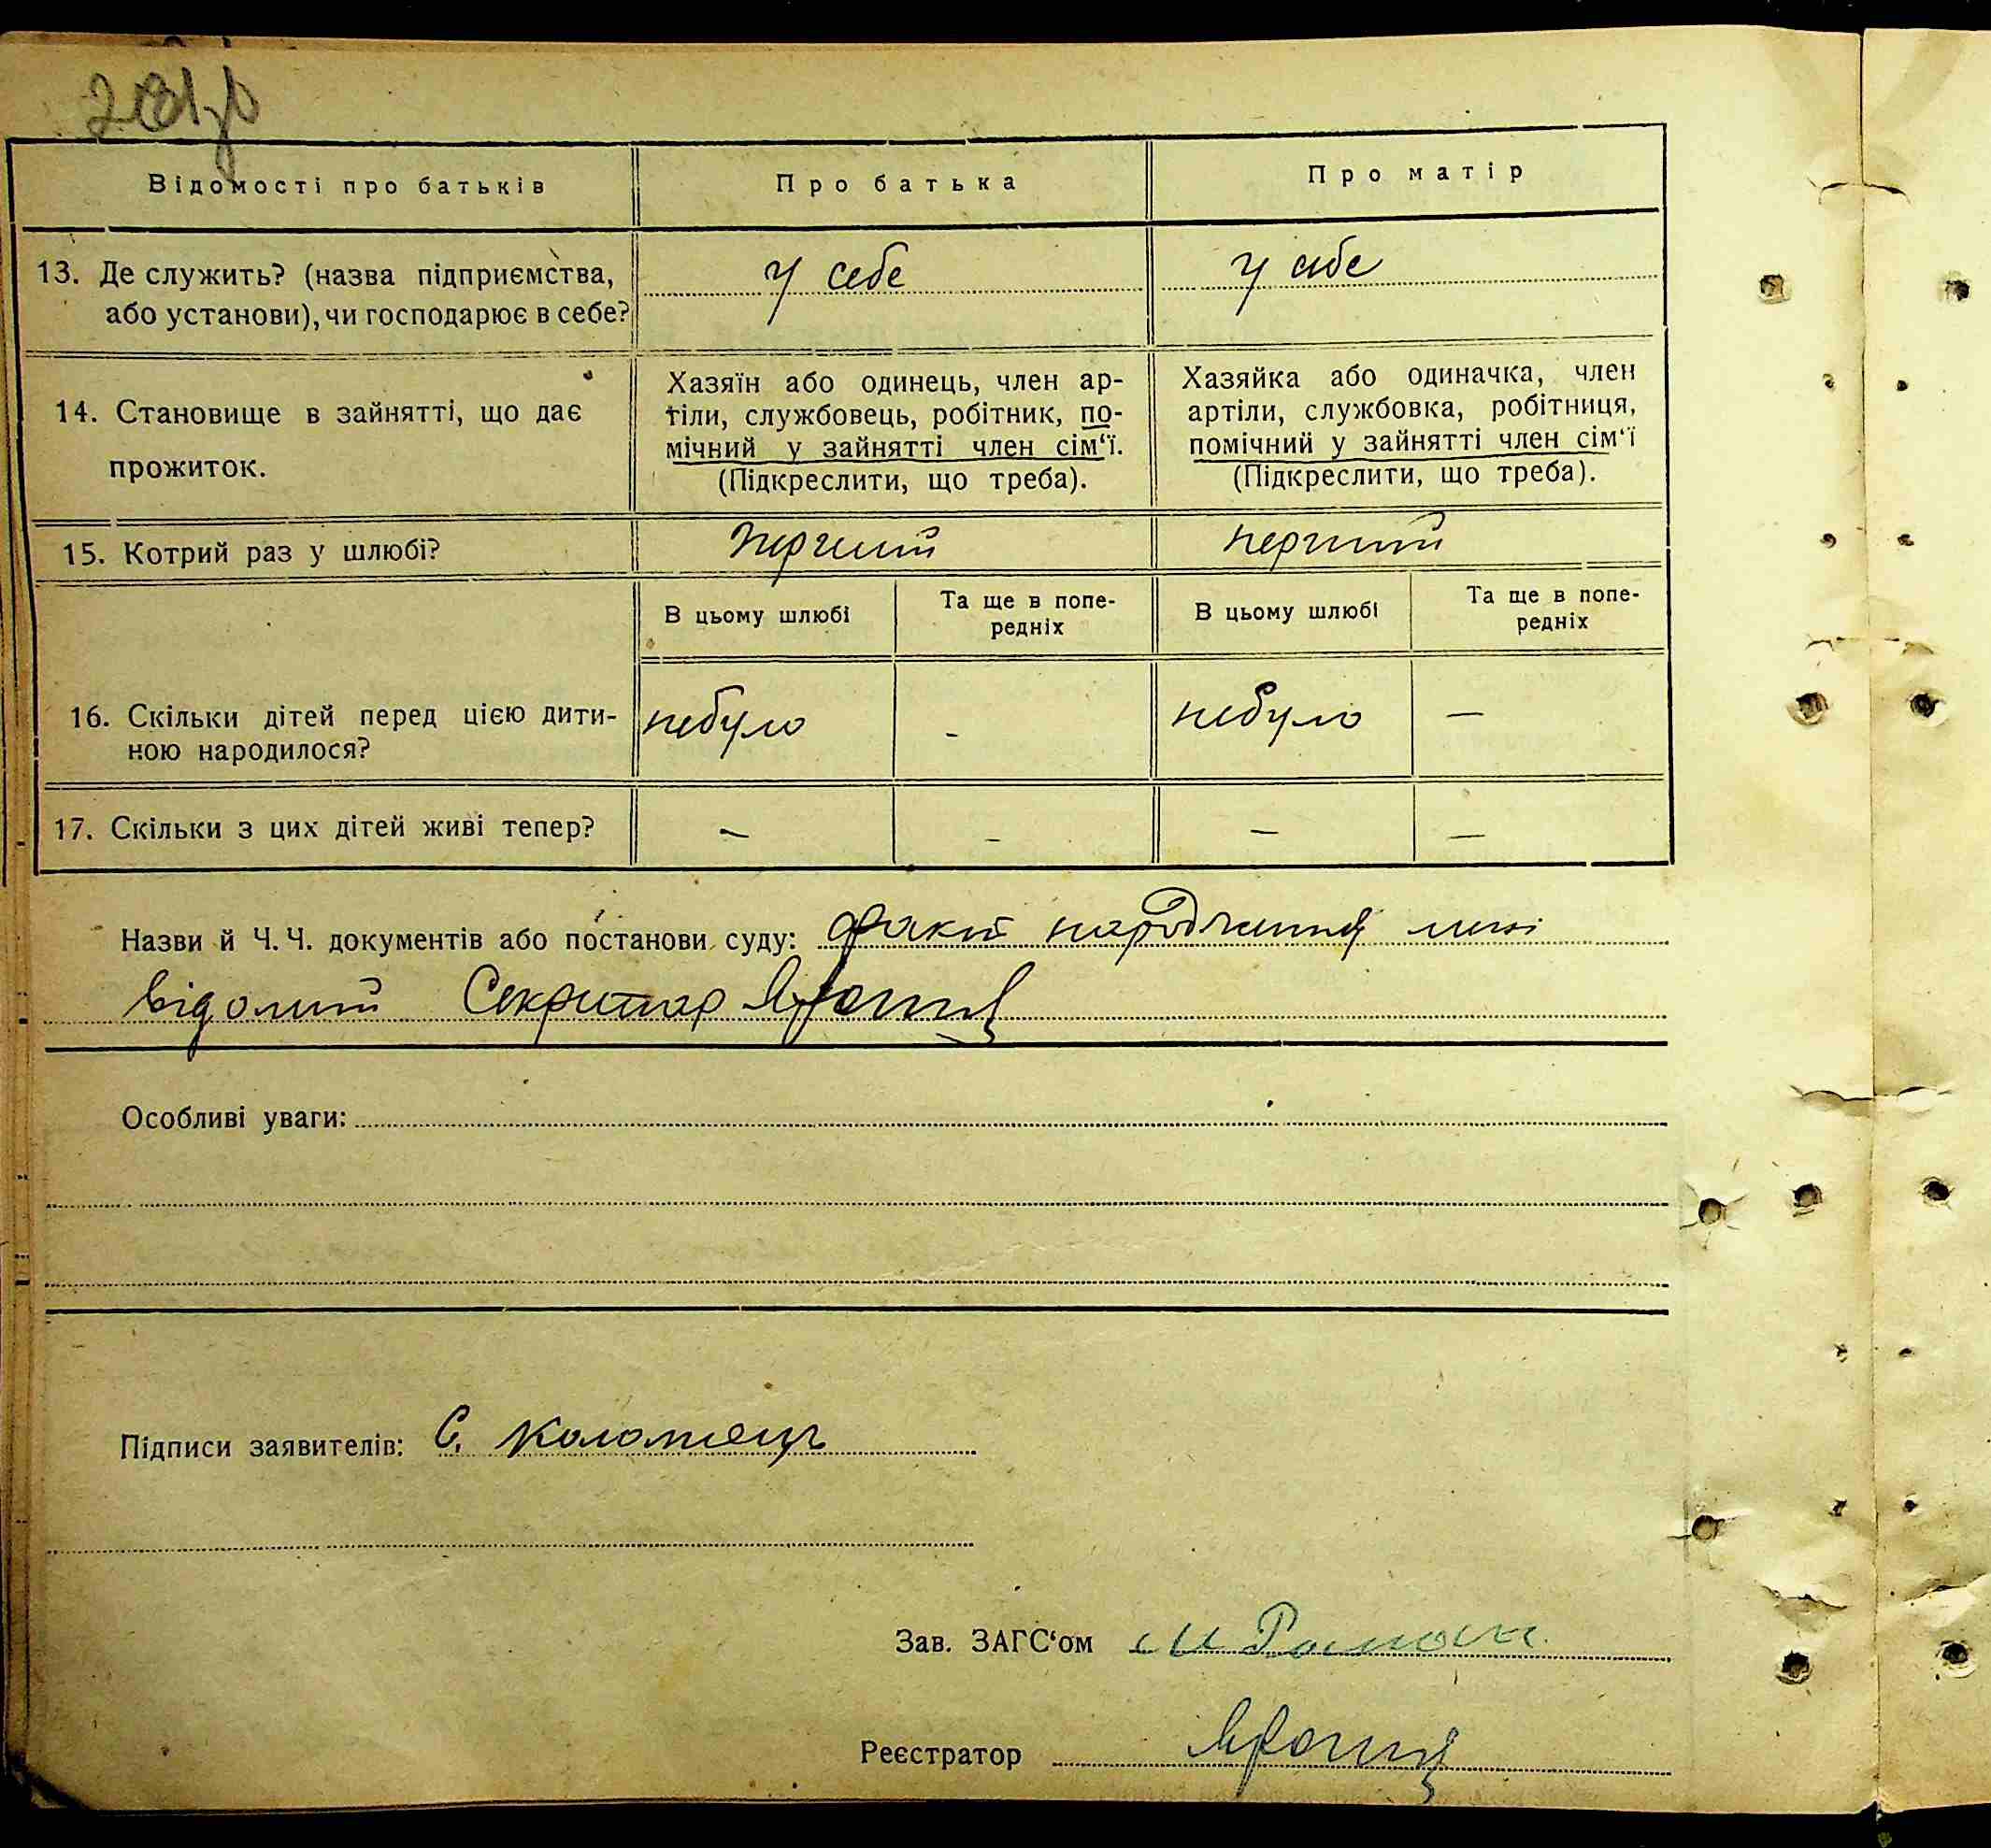 Відомості про батьків
Про батька
Про матір
13. Де служить? (назва підприємства,
або установи), чи господарює в себе?
у себе
у себе
14. Становище в зайнятті, що дає
прожиток.
Хазяїн або одинець, член ар-
тіли, службовець, робітник, по-
мічний у зайнятті член сім‘ї.
(Підкреслити, що треба).
Хазяйка або одиначка, член
артіли, службовка, робітниця,
помічний у зайнятті член сім‘ї
(Підкреслити, що треба).
15. Котрий раз у шлюбі?
перший
перший
В цьому шлюбі
Та ще в попе-
редніх
В цьому шлюбі
Та ще в попе-
редніх
16. Скільки дітей перед цією дити-
ною народилося?
небуло
-
небуло
—
17. Скільки з цих дітей живі тепер?
—
-
—
—
Назви й Ч. Ч. документів або постанови суду: факт народження мені
відомий Секретар
Особливі уваги:
Підписи заявителів: С. Коломієць
Зав. ЗАГС‘ом
Реєстратор